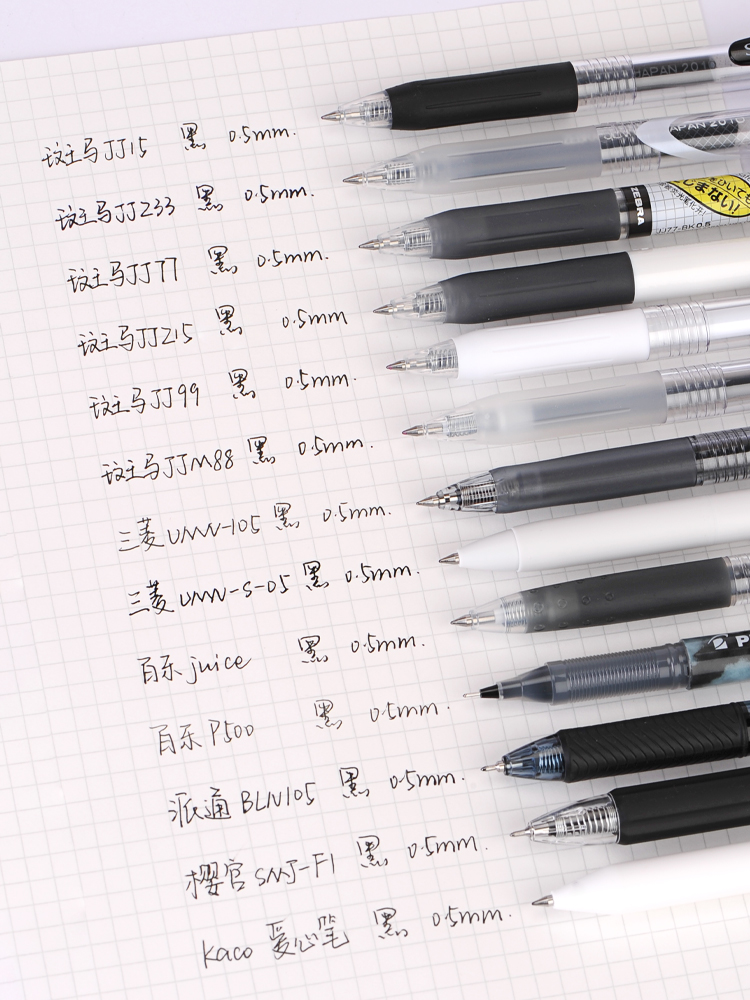 斑马JJ15 黑 0.5mm.
斑马JJZ33 黑 0.5mm.
斑马JJ77 黑 0.5mm.
斑马JJZ15 黑 0.5mm
斑马JJ99 黑 0.5mm.
斑马JJM88 黑 0.5mm.
三菱UMN-105 黑 0.5mm.
三菱UMN-S-05 黑 0.5mm.
百乐juice 黑 0.5mm.
百乐P500 黑 0.5mm.
派通BLN105 黑 0.5mm.
樱官SNJ-F1 黑 0.5mm.
kaco 爱心笔 黑 0.5mm.
JAPAN 2016
JAPAN 2016
ZEBRA
じまない!
JJ77-BK0.5